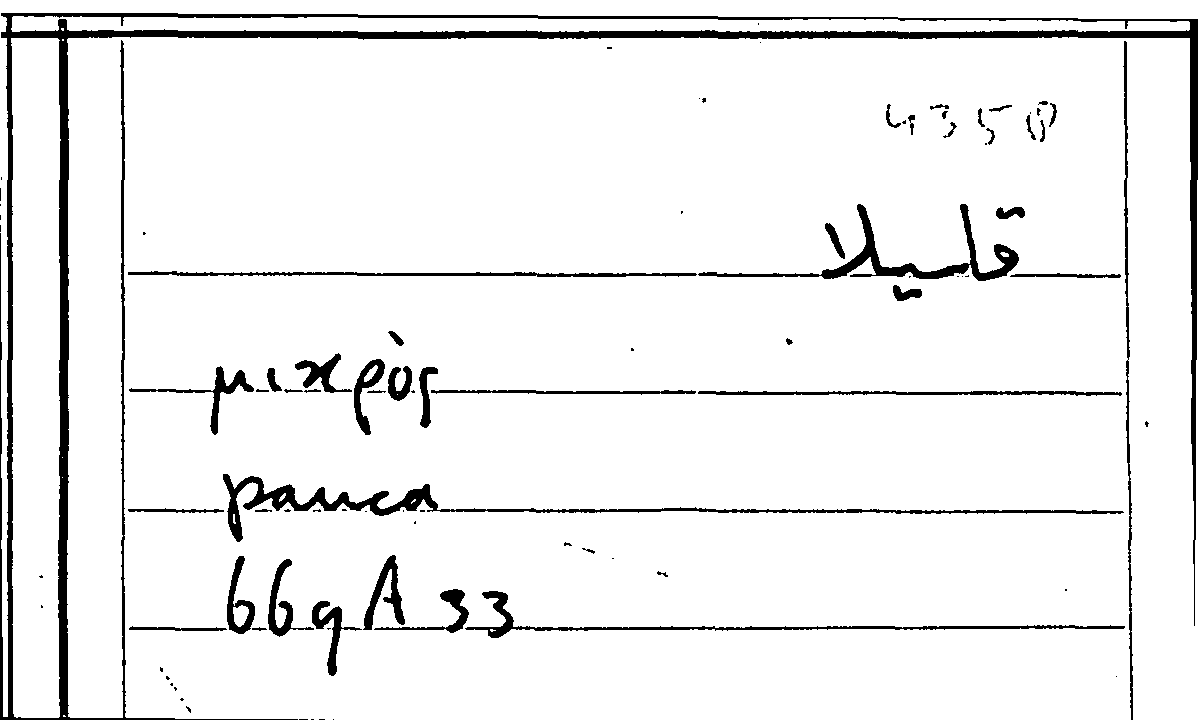 4358
قليلا
μικρὸς
pauca
669 A 33